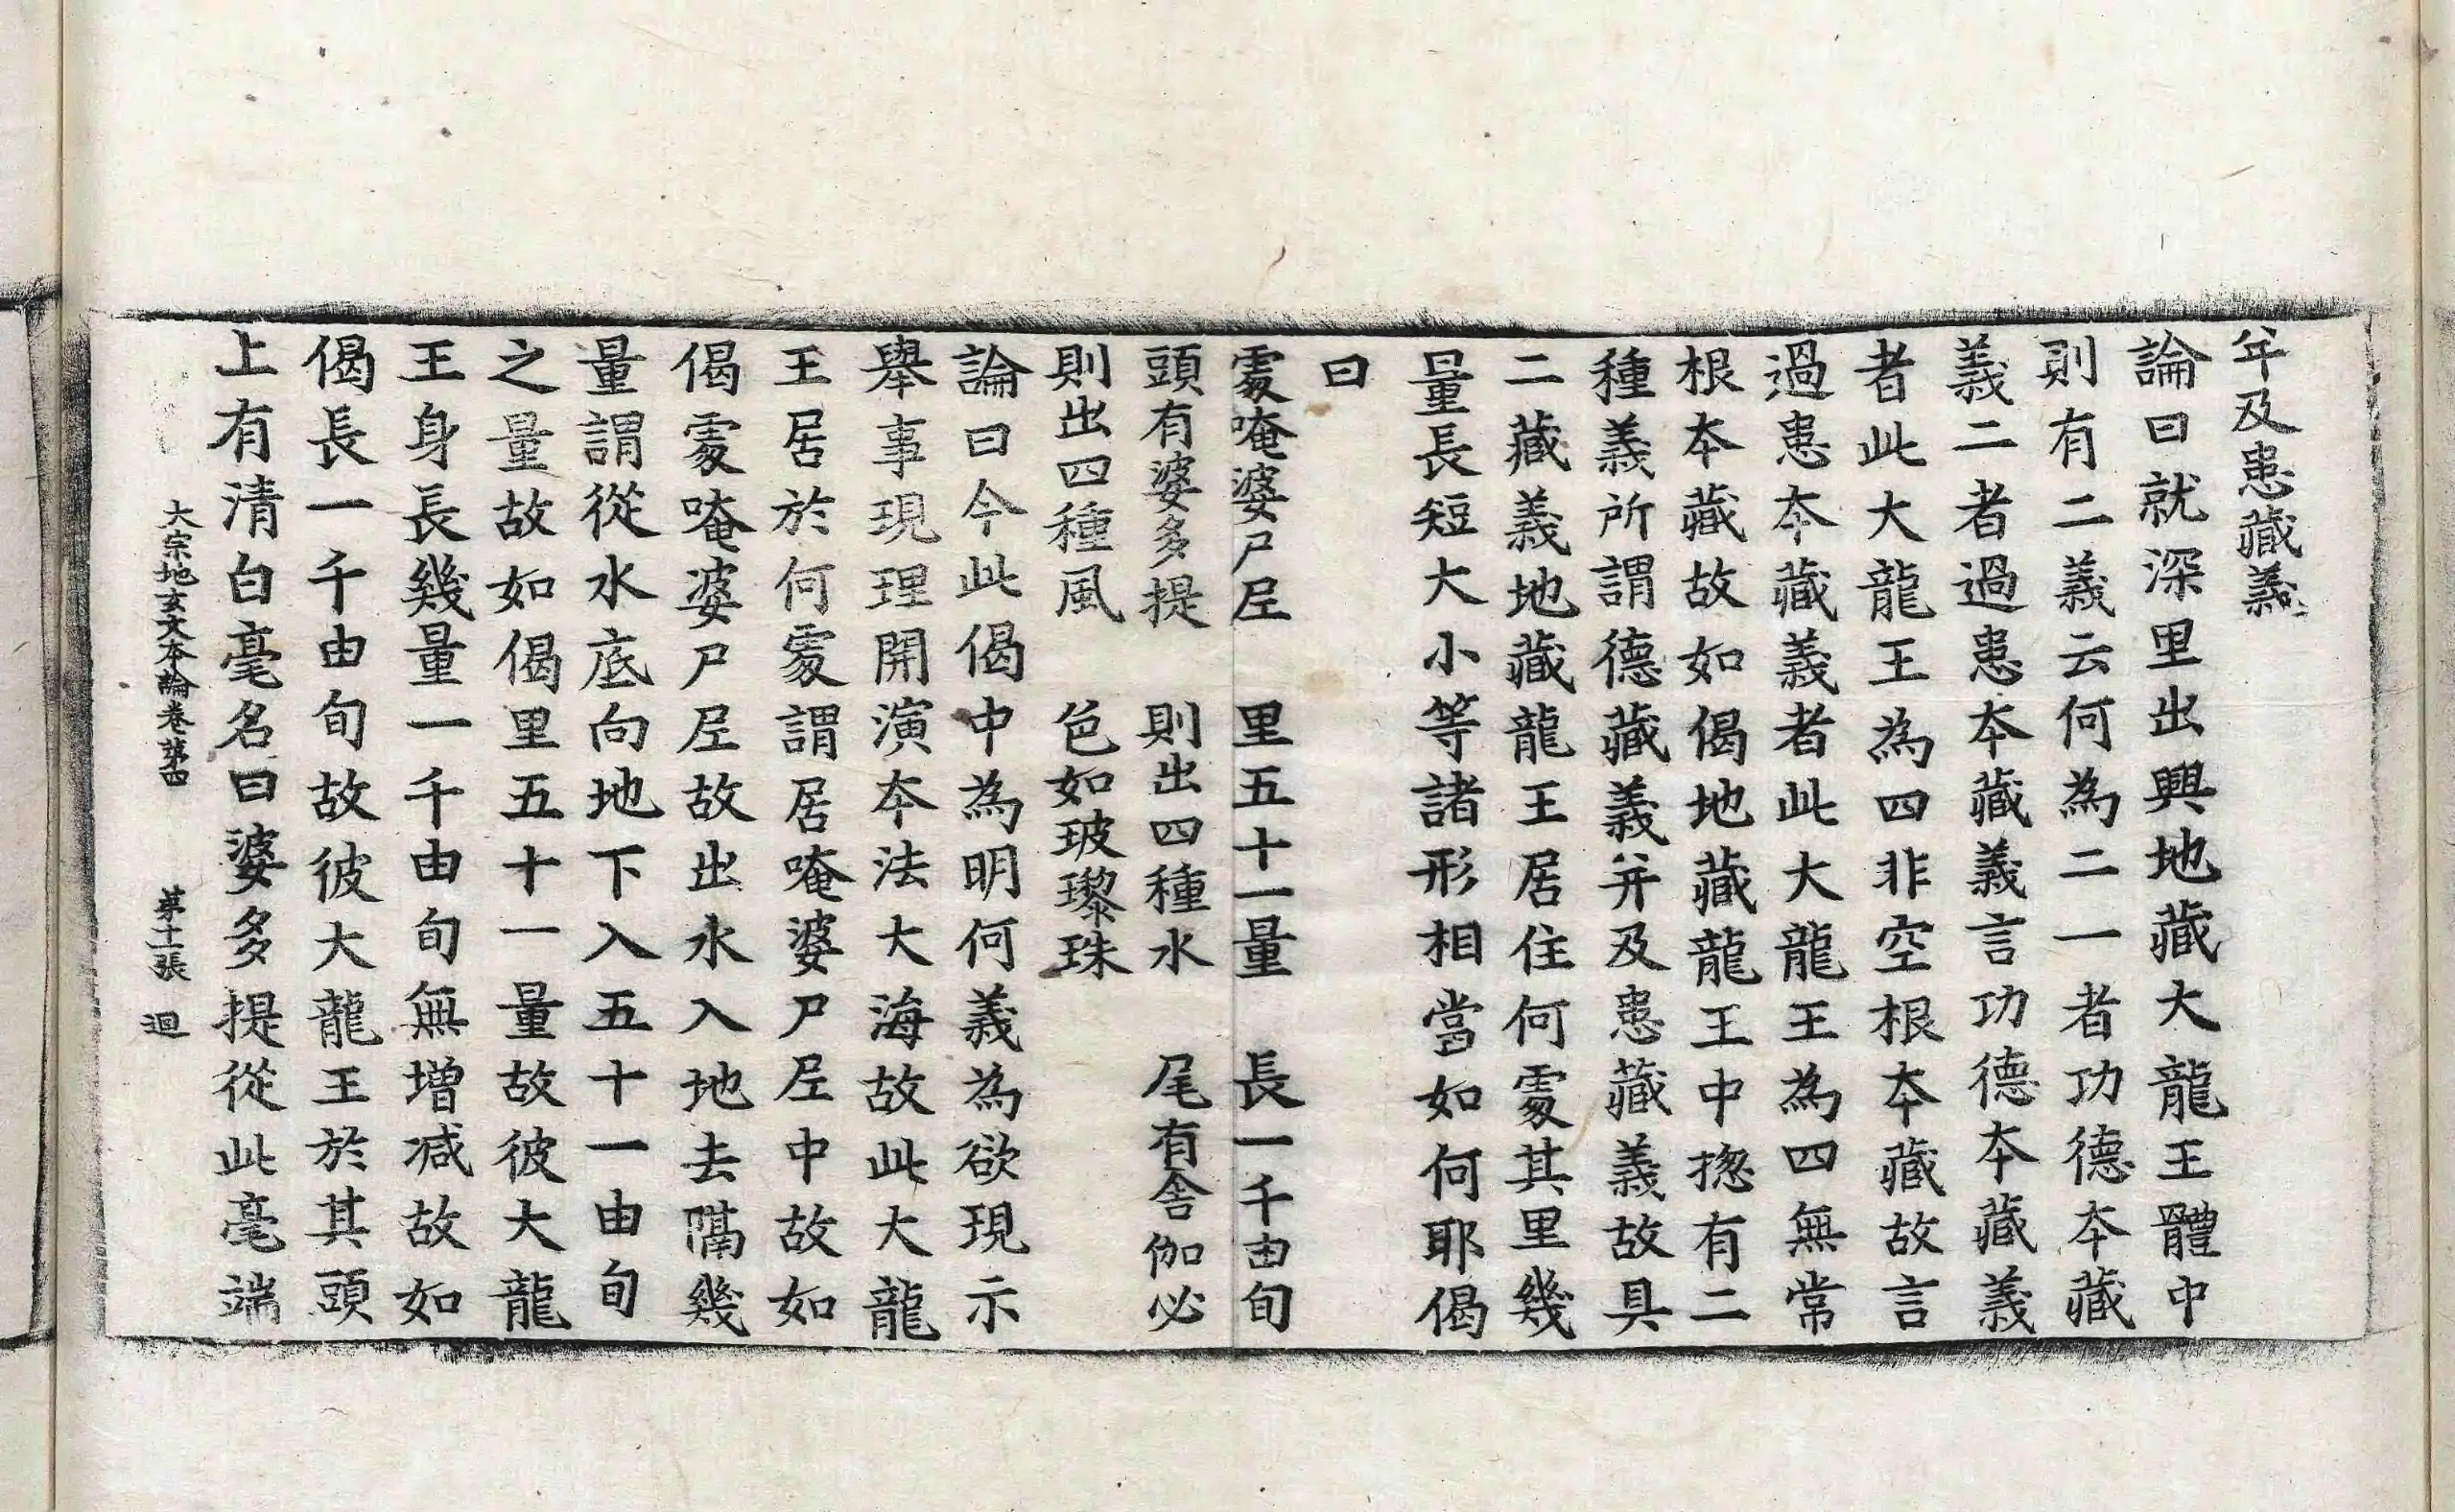 年及患藏義
論曰就深里出興地藏大龍王體中
則有二義云何為二一者功德夲藏
義二者過患夲藏義言功德夲藏義
者此大龍王為四非空根夲藏故言
過患夲藏義者此大龍王為四無常
根夲藏故如偈地藏龍王中揔有二
種義所謂德藏義并及患藏義故具
二藏義地藏龍王居住何䖏其里幾
量長短大小等諸形相當如何耶偈
曰
䖏唵婆尸㞐　里五十一量　長一千由旬
頭有婆多提　則出四種水　尾有舍伽必
則出四種風　色如玻瓈珠
論曰今此偈中為明何義為欲現示
舉事現理開演夲法大海故此大龍
王居於何䖏謂居唵婆尸㞐中故如
偈䖏唵婆尸㞐故出水入地去隔幾
量謂從水底向地下入五十一由旬
之量故如偈里五十一量故彼大龍
王身長幾量一千由旬無增減故如
偈長一千由旬故彼大龍王於其頭
上有清白毫名曰婆多提從此毫端
大宗地玄文本論卷第四　第十一張　迴